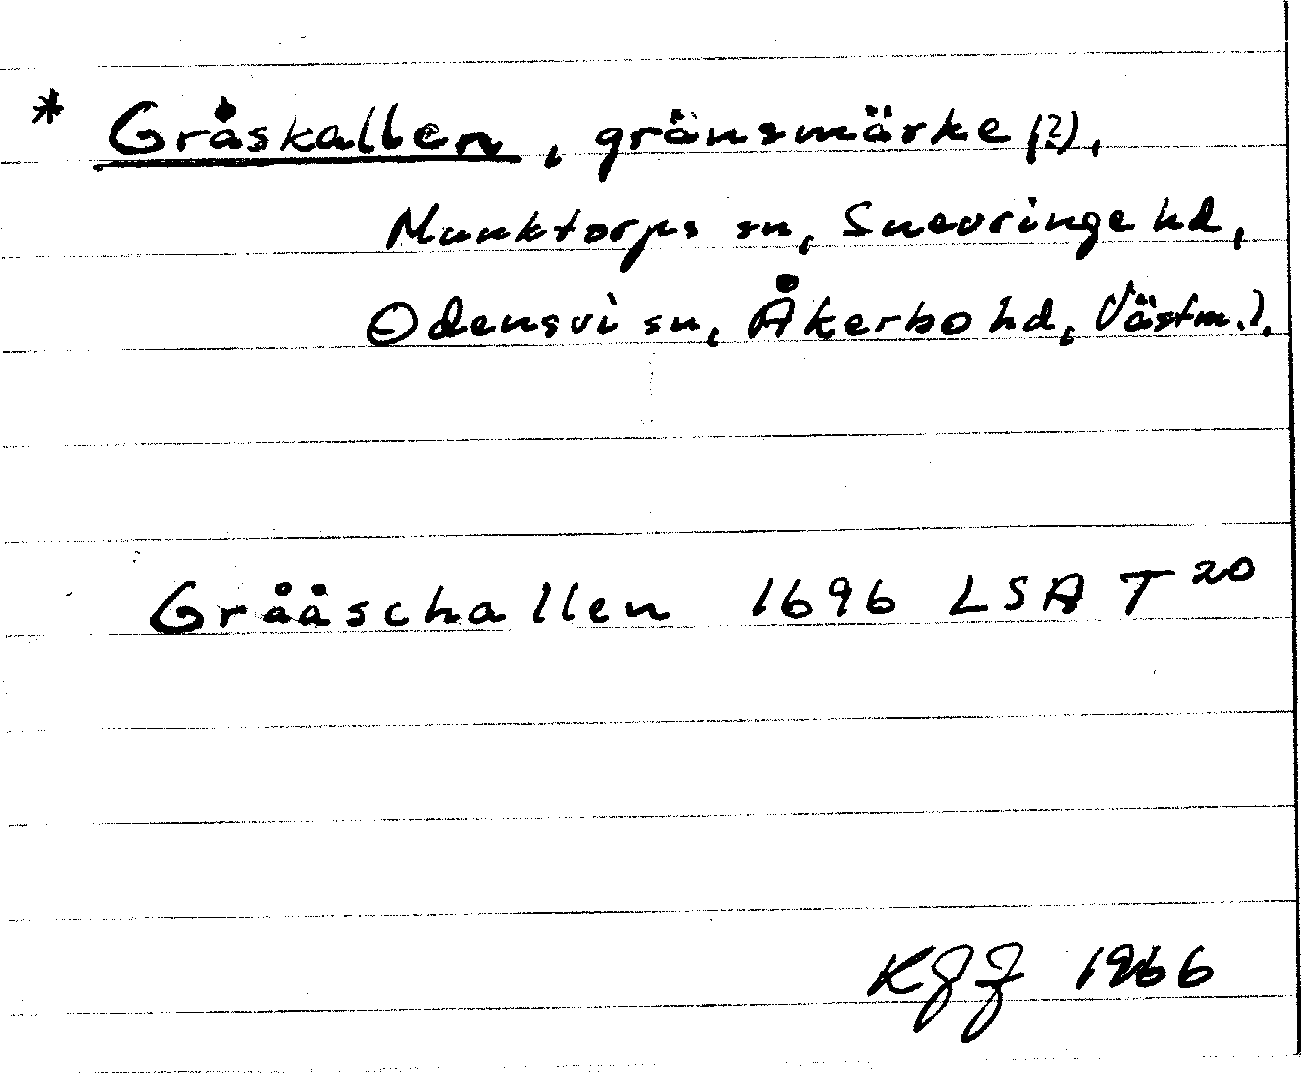 * Gråskallen, gränsmärke (?),
Munktorps sn, Snevringe hd,
Odensvi sn, Åkerbo hd, Västm.).
Grååschallen 1696 LSA T 20
1966